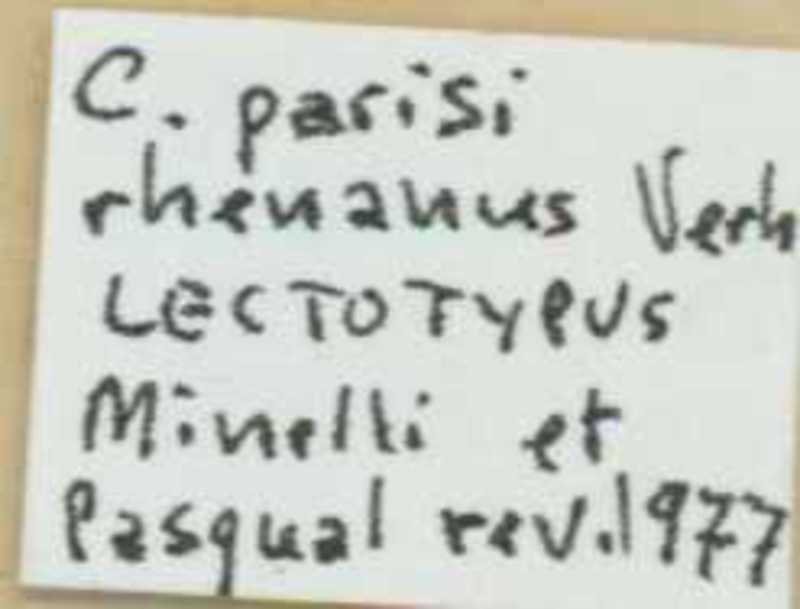 C. parisi
rhenanus Verh
LECTOTYPUS
Minelli et
Pasqual rev. 1977